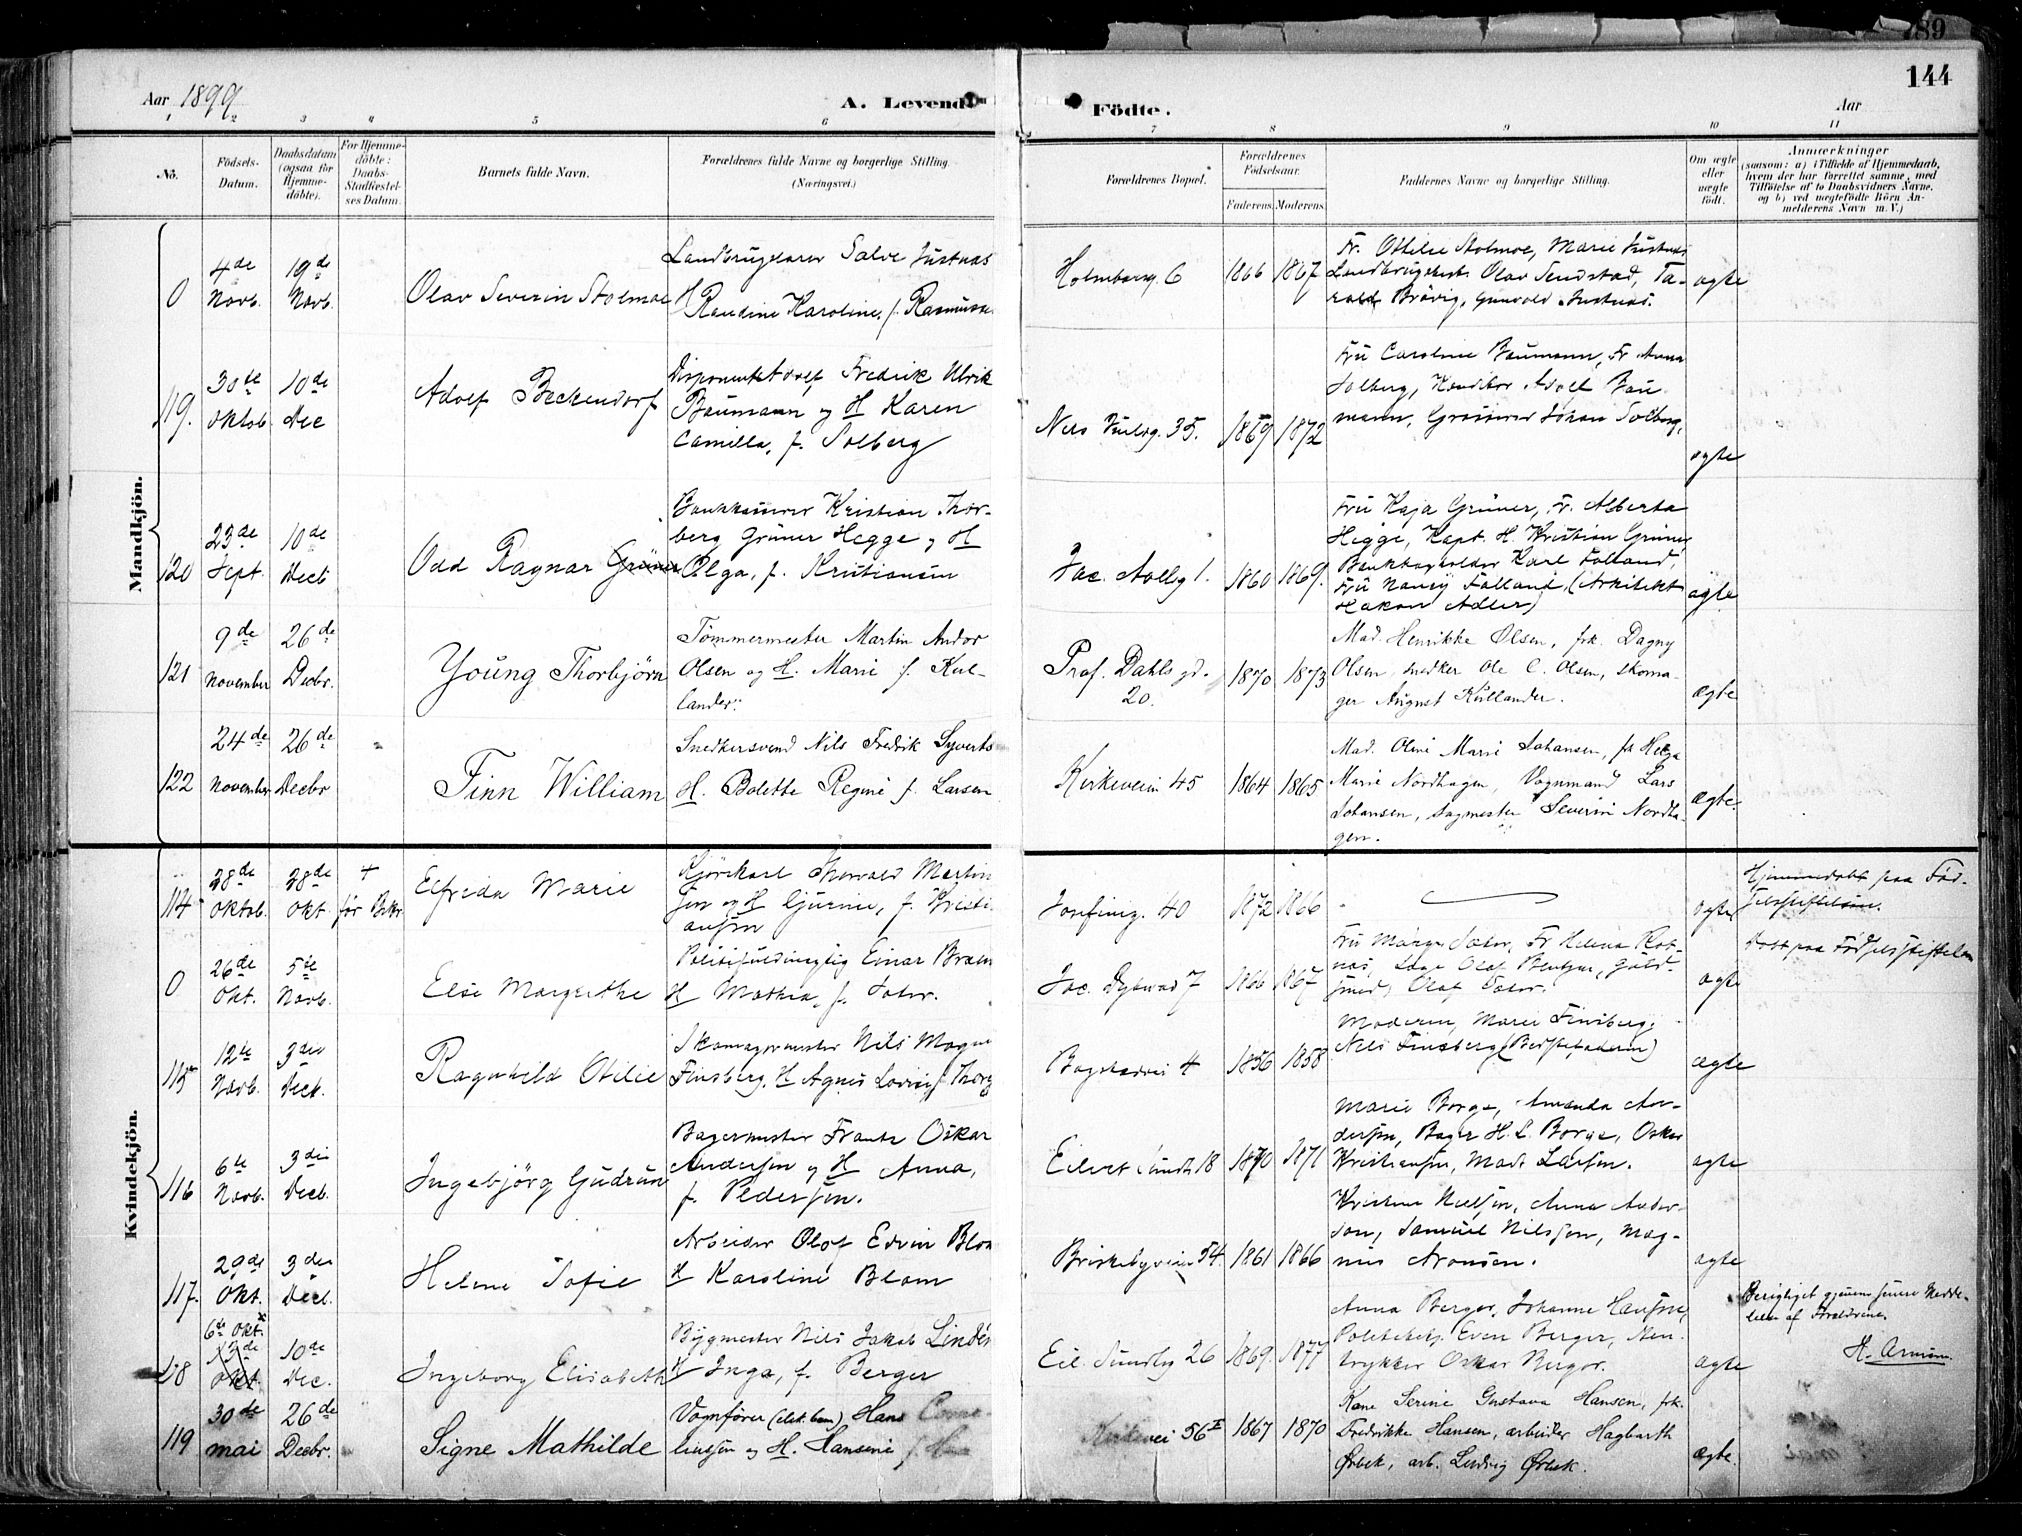 89
144
Aar 1899
A. Levende
Födte.
Aar
1 2 3 4 5 6 7 8 9 10 11
No.
Födsels-Datum.
Daabsdatum (ogsaa for Hjemme-döbte).
For Hjemme-döbte: Daabs-Stadfæstel-ses Datum.
Barnets fulde Navn.
Forældrenes fulde Navne og borgerlige Stilling. (Næringsvei.)
Forældrenes Bopæl.
Forældrenes Födselsaar.
Faderens Moderens
Faddernes Navne og borgerlige Stilling.
Om ægte eller uægte födt.
Anmærkninger
(saasom: a) i Tilfælde af Hjemmedaab,
hvem der har forrettet samme, med
Tilföielse af to Daabsvidners Navne.
og b) ved uægtefödte Börn An-
melderens Navn m. V.)
Mandkjön.
0
4de Novb.
19de Novb.
Olav Severin Stolmoe
Salve Justnæs
H Randine Karoline, f. Rasmusse
Holmborg. 6
1866 1867
Fr. Ottilie Stolmoe, Marie Justnæs
Olav Sendstad, Ta-
rald Brövig, Gunvald Justnæs.
ægte
119.
30te Oktob.
10de Dec
Adolf Beckendorf
Disponent Adolf Fredrik Ulrik
Baumann og H Karen
Camilla, f. Solberg
Nils Juelsg. 35.
1869 1872
Fru Caroline Baumann, Fr Anna
Solberg, Konditor Adolf Bau
mann, Grosserer Johan Solberg,
ægte
120
23de Sept.
10de Decb
Odd Ragnar Grüner
Bankkasserer Kristian Thor-
berg Grüner Hegge og H
Olga, f. Kristiansen
Jac. Aallsg 1.
1860 1869.
Fru Kaja Grüner, Fr. Alberta
Hegge, Kapt. H. Kristian Grüner
Bankbogholder Karl Falland,
Fru Nancy Falland, (Arkitekt
Hakon Adler)
ægte
121
9de November
26de Decbr.
Young Thorbjörn
Tömmermester Martin Andor
Olsen og H. Marie f. Kul-
lander.
Prof. Dahls gd. 20.
1870 1873
Mad. Henrikke Olsen, frk. Dagny
Olsen, snedker Ole C. Olsen, skoma-
ger August Kullander.
ægte
122
24de November
26de Decbr
Finn William
Snedkersvend Nils Fredrik Syverts
H. Bolette Regine f. Larsen
Kirkeveien 45
1864 1865
Mad. Oline Marie Johansen, frk Helga
Marie Nordhagen, Vognmand Lars
Johansen, sagmester Severin Nordha-
gen.
ægte.
Kvindekjön.
114
28de Oktob.
28de Okt
+
för Bekr
Elfrida Marie
Kjörekarl Thorvald Martin
sen og H Gjurine, f. Kristi
ansen
Josefinesg. 40
1872 1866
ægte
Hjemmedöbt paa Föd-
selsstiftelsen.
Döbt paa Födselsstiftelsen
0
26de Okt.
5te Novb.
Else Margrethe
Politifuldmægtig Einar
H Mathea, f. Sater.
Jac. Dybwad 7
1866 1867
Læge Olaf Guld-
smed Olaf Sater.
ægte
115
12te Novb.
3die Decb.
Ragnhild Otilie
Skomagermester Nils Magnu
Finsberg, H Agnes Lovise f. Thorg
Bogstadvei 4
1856 1858
Moderen, Marie Finsberg,
Nils Finsberg (Bedstefaderen)
ægte
116
6te Novb.
3die Decb.
Ingebjörg Gudrun
Bagermester Frantz Oskar
Andersen og H Anna,
f. Pedersen.
Eilert Sundts 18
1870 1871
Marie Borge, Amanda An-
dersen, Bager H. L. Borge, Oskar
Kristiansen, Mads Larsen.
ægte
117.
29de Okt.
3die Decb.
Helene Sofie
Arbeider Olof Edvin Blom
H Karoline Blom
Briskebyveien 54.
1861 1866
Kristine Nielsen, Anna Ander-
son, Samuel Nilssen, Mag-
nus Aronsen.
ægte
118
6te Okt.
13de Okt.
10de Dec.
Ingeborg Elisabeth
Bygmester Nils Jakob Lindé
H Inga, f. Berger
Eil. Sundtsg 26
1869. 1877
Anna Berger, Johanne Hansen,
Politibetj. Even Berger, Sten-
trykker Oskar Berger.
ægte
Berigtiget gjennem senere Medde-
lelse af Forældrene.
H. Arnesen.
119
30de mai
26de Decbr.
Signe Mathilde
Vognförer (elek. ban) Hans Corne-
liussen og H. Hansine f.
Kirkevei 56 I
1867 1870
Kone Serine Gustava Hansen, frk.
Fredrikke Hansen, arbeider Hagbarth
Ørbek, arb. Ludvig Ørbek.
ægte.